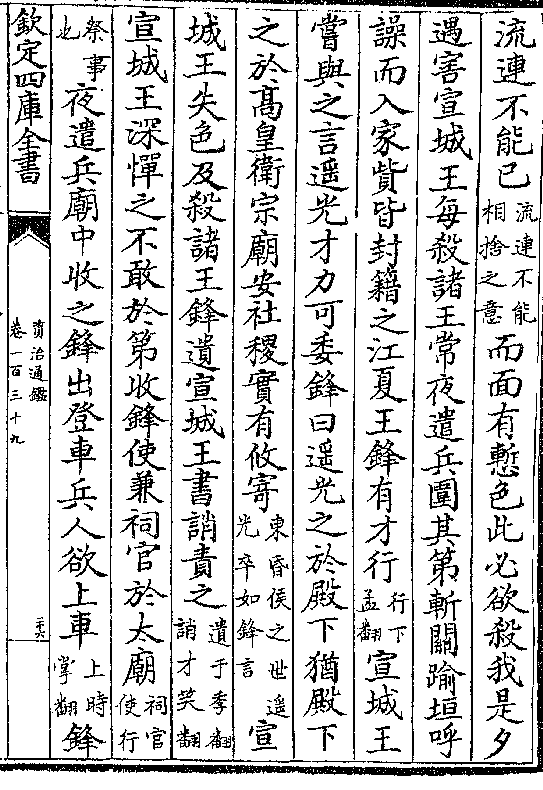 流連不能已流連不能相捨之意而面有慙色此必欲殺我是夕
遇害宣城王每殺諸王常夜遣兵圍其第斬關踰垣呼
譟而入家貲皆封籍之江夏王鋒有才行行下孟翻宣城王
嘗與之言遥光才力可委鋒曰遥光之於殿下猶殿下
之於髙皇衛宗廟安社稷實有攸寄東昏侯之世遥光卒如鋒言宣
城王失色及殺諸王鋒遺宣城王書誚責之遺于季翻誚才笑翻
宣城王深憚之不敢於第收鋒使兼祠官於太廟祠官使行
祭事也夜遣兵廟中收之鋒出登車兵人欲上車上時掌翻鋒
欽定四庫全書
資治通鑑
卷一百三十九
二十六